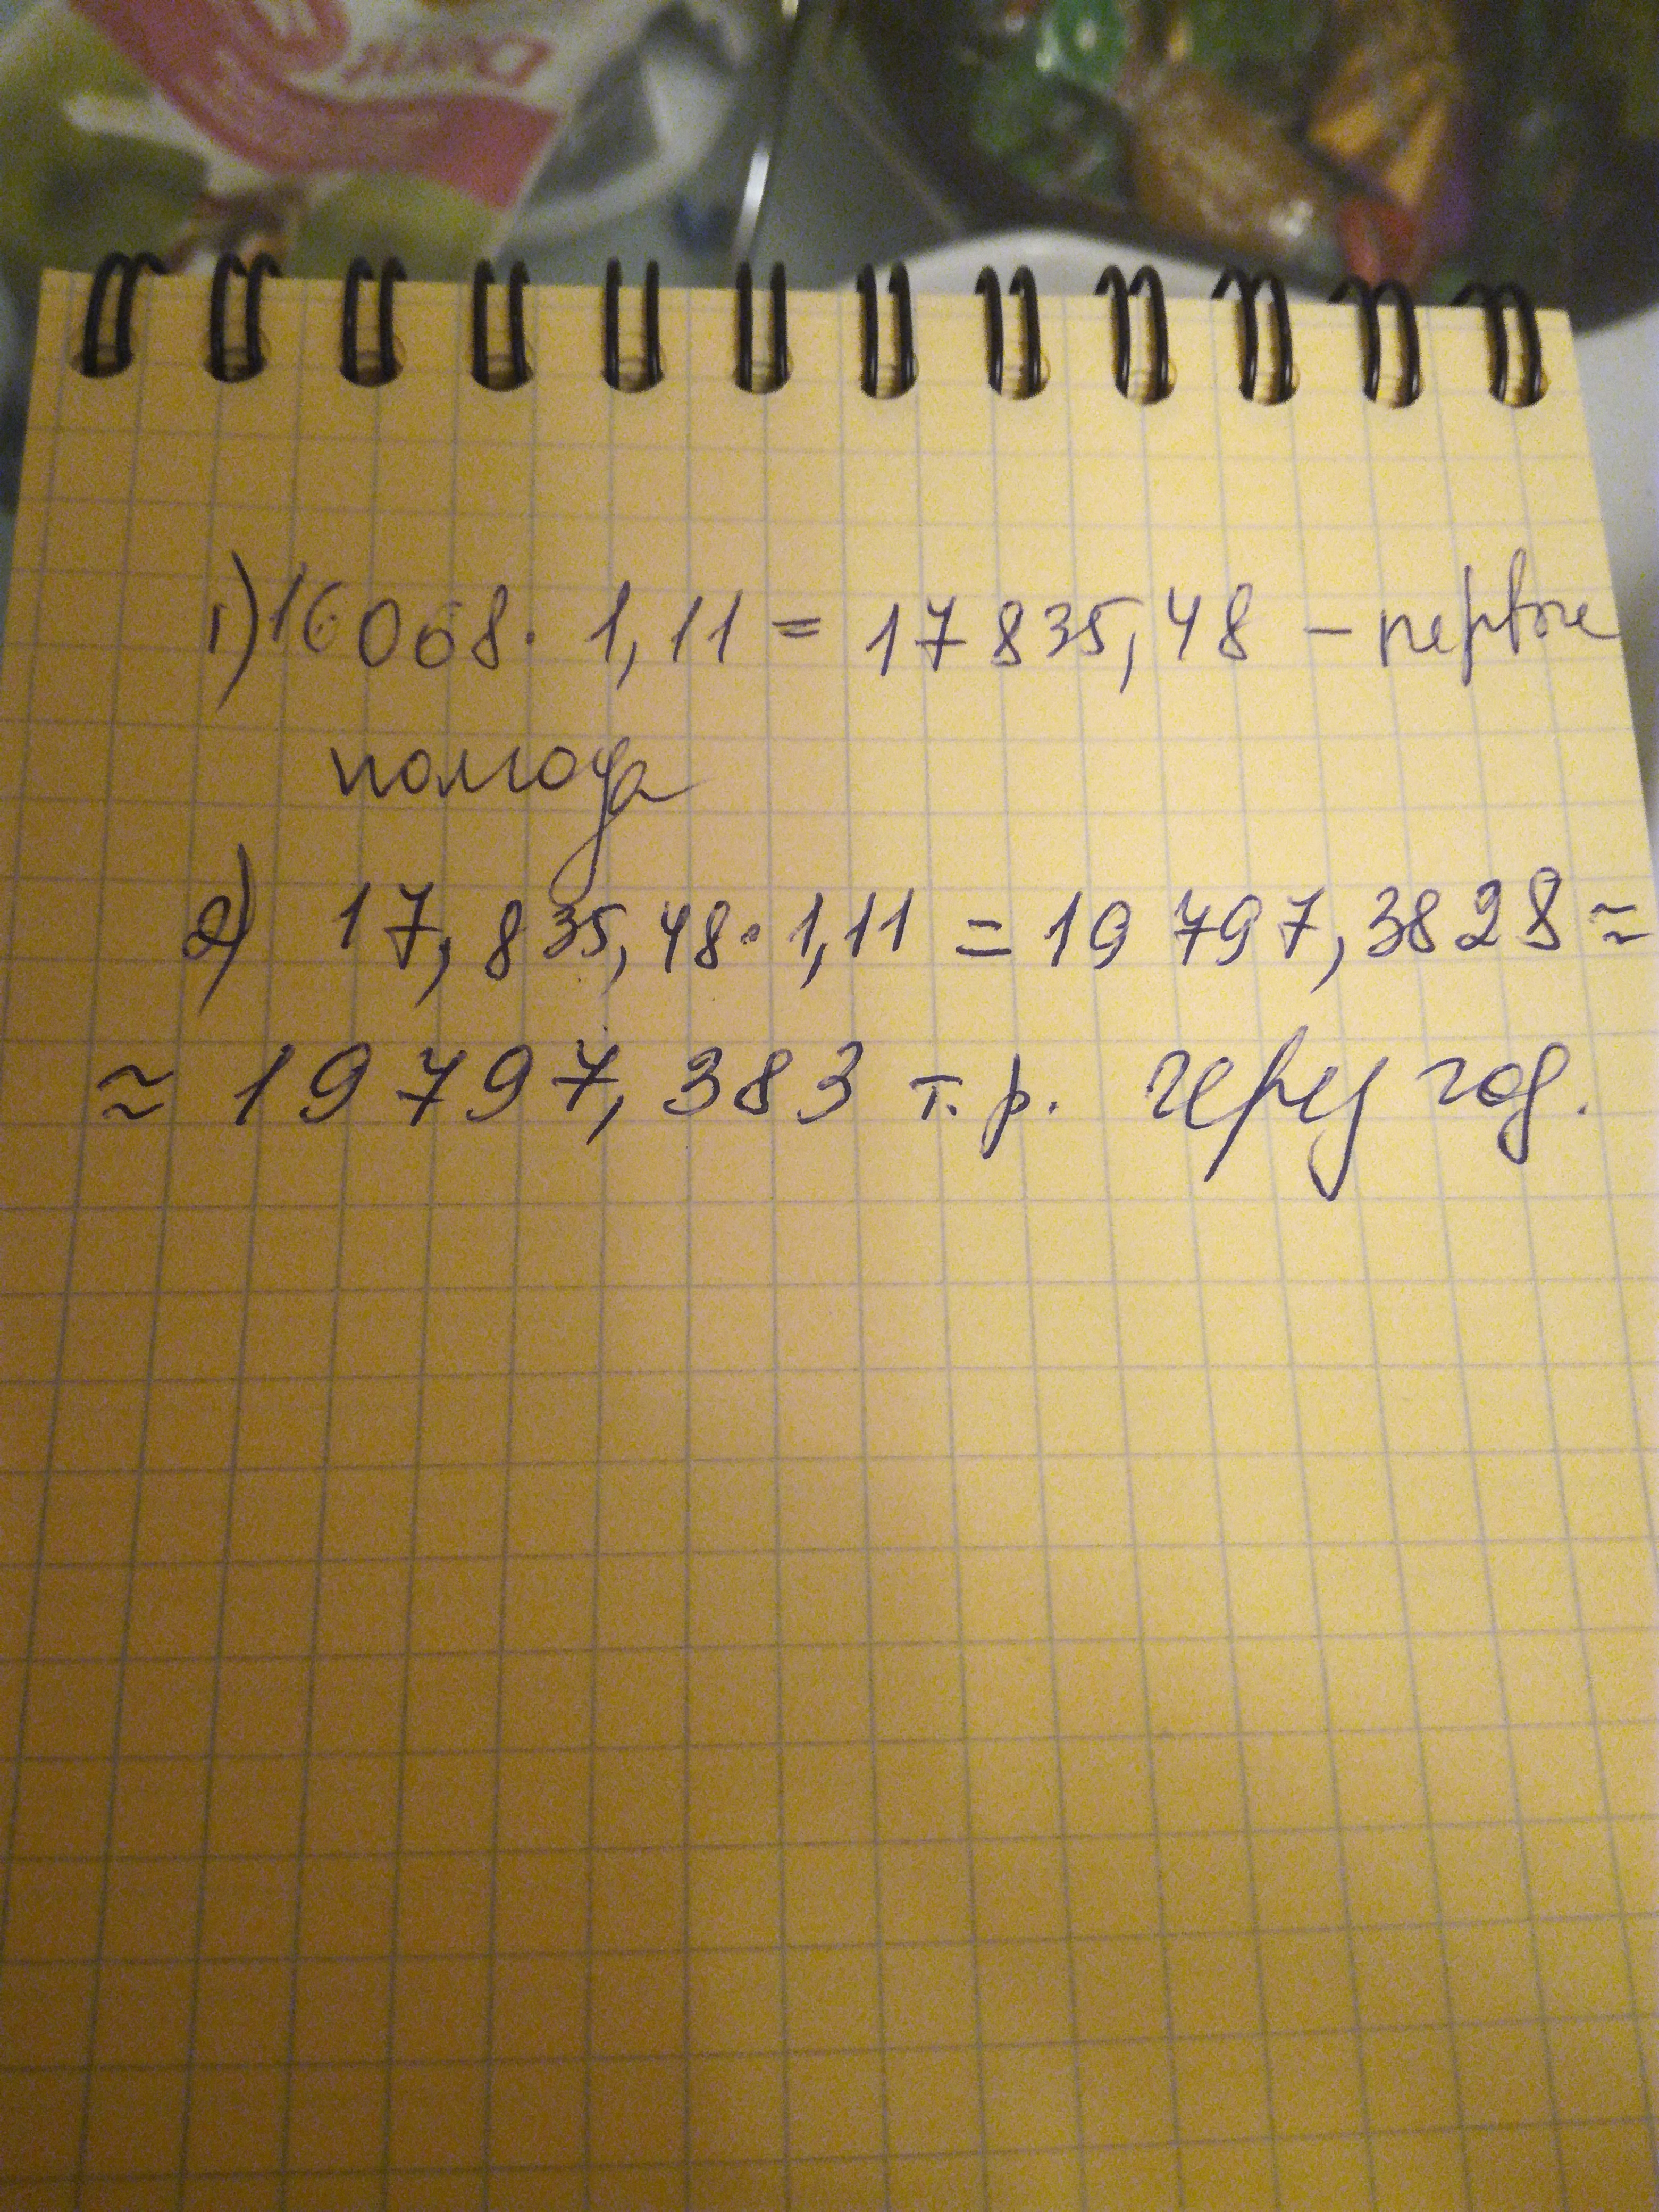 1) 16 068 · 1,11 = 17 835,48 – первые
полгода
2) 17,835,48 · 1,11 = 19 797,3828 ≈
≈ 19 797,383 т.р. через год.